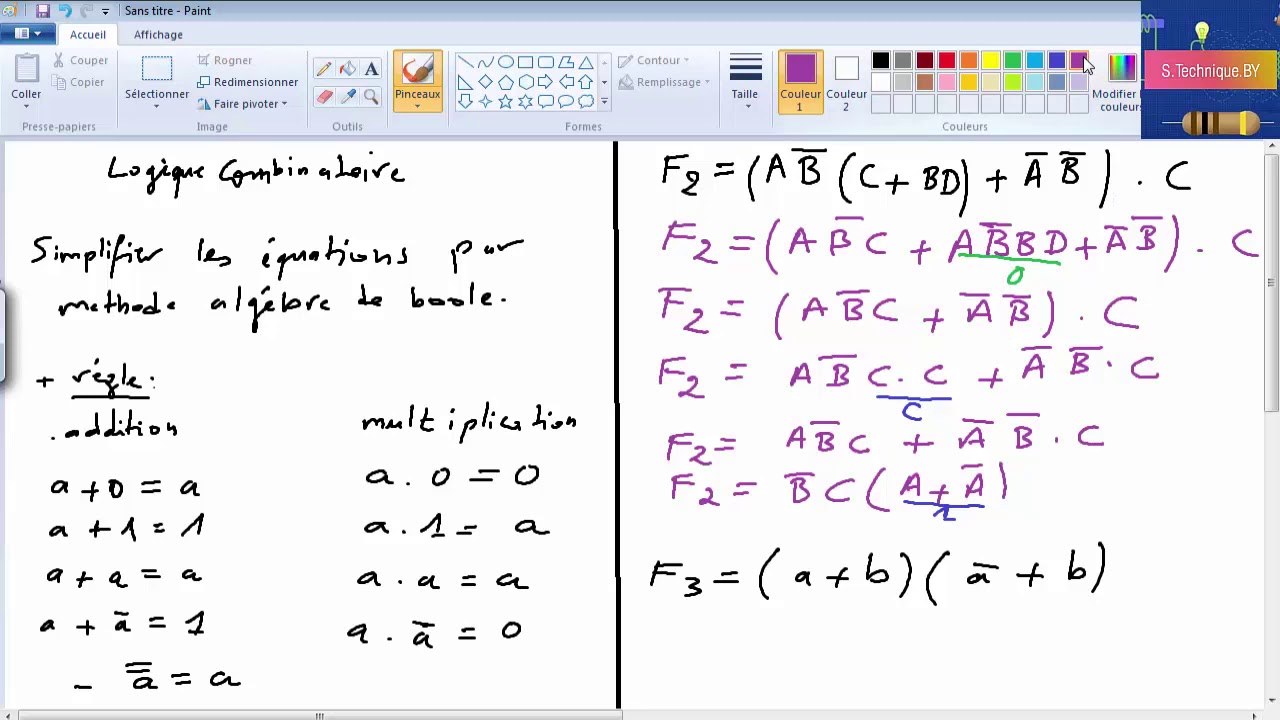 Sans titre - Paint
Accueil Affichage
Coller
Couper
Copier
Presse-papiers
Sélectionner
Rogner
Redimensionner
Faire pivoter
Image
A
Outils
Pinceaux
Contour
Remplissage
Formes
Taille
Couleur 1
Couleur 2
Modifier les couleurs
Couleurs
S.Technique.BY
Logique Combinatoire
Simplifier les équations par
methode algébre de boole.
+ régle:
.addition
a + 0 = a
a + 1 = 1
a + a = a
a + ā = 1
- a̿ = a
multiplication
a . 0 = 0
a . 1 = a
a . a = a
a . ā = 0
F2 = (A B̅ (C + BD) + A̅ B̅) . C
F2 = (A B̅ C + A B̅ B D + A̅ B̅) . C
0
F2 = (A B̅ C + A̅ B̅) . C
F2 = A B̅ C . C + A̅ B̅ . C
C
F2 = A B̅ C + A̅ B̅ . C
F2 = B̅ C (A + A̅)
1
F3 = (a + b)(ā + b)